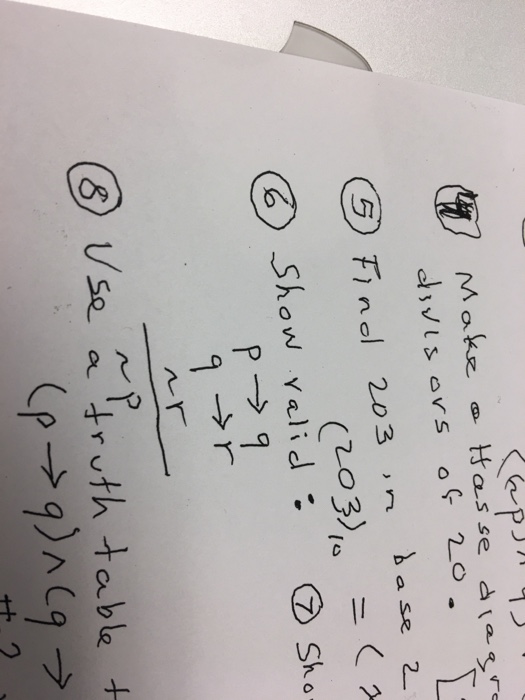 ④ Make a Hasse diagr
divisors of 20.
⑤ Find 203 in base 2
(203)₁₀ = (
⑥ Show valid: ⑦ Sho
p → q
q → r
~r
~p
⑧ Use a truth table t
(p → q) ∧ (q →